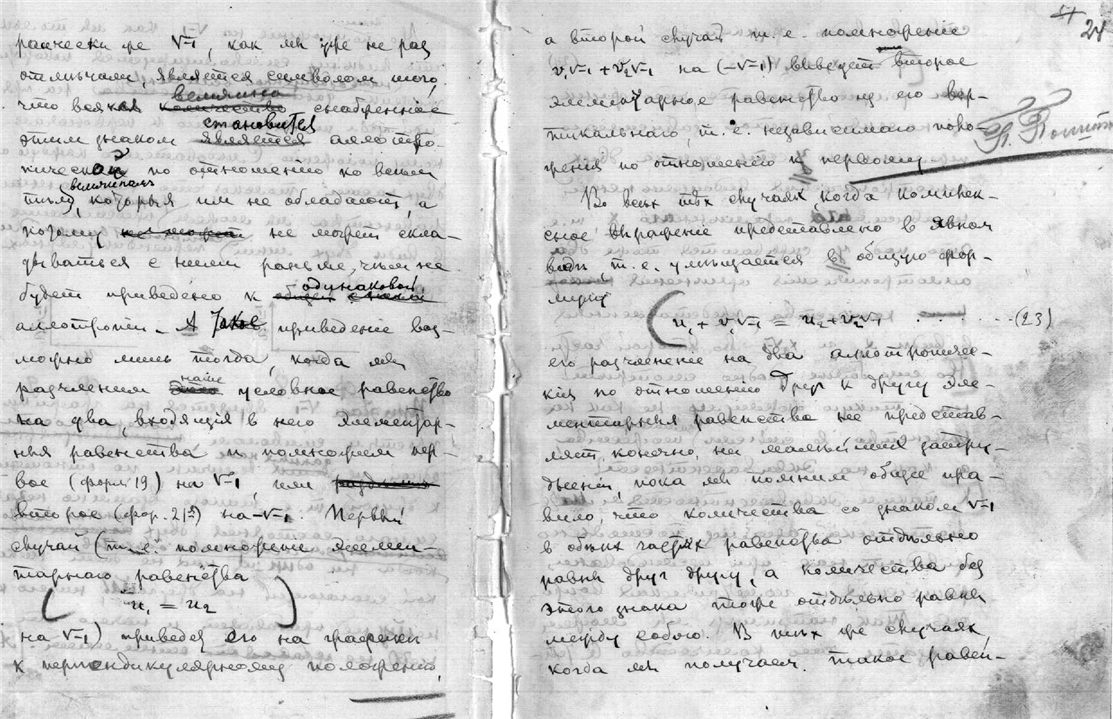 рачески же √-1, как мы уже не раз
отмѣчали, является символом того,
что всякая величина количество снабженное
этим знаком становится является аллотро-
пической по отношению ко всѣм
тѣм величинам, которыя им не обладают, а
потому не может скла-
дываться с ними раньше, чѣм не
будет приведено к одинаковой
аллотропіи. А такое приведеніе воз-
можно лишь тогда, когда мы
расчленим наше условное равенство
на два, входящія в него элементар-
ныя равенства и помножим пер-
вое (форм. 19) на √-1, или раздѣлим
второе (фор. 21) на -√-1. Первый
случай (т. е. помноженіе элемен-
тарнаго равенства
u₁ = u₂
на √-1) приведет его на графики
к перпендикулярному положенію,
24
а второй случай т. е. помноженіе
v₁√-1 + v₂√-1 на (-√-1) выведет второе
элементарное равенство из его вер-
тикальнаго, т. е. независимаго поло-
женія по отношению к первому.
Во всѣх тѣх случаях когда комплек-
сное выраженіе представлено в явном
видѣ т. е. умѣщается в общую фор-
мулу
u₁ + v₁√-1 = u₂ + v₂√-1 . . . . . (23)
его расчлененіе на два аллотропиче-
ких по отношению друг к другу эле-
ментарныя равенства не представ-
ляет, конечно, ни малѣйших затру-
дненій, пока мы помним общее пра-
вило, что количества со знаком √-1
в обѣих частях равенства отдѣльно
равны друг другу, а количества без
этого знака тоже отдѣльно равны
между собою. В тѣх же случаях,
когда мы получаем такое равен-